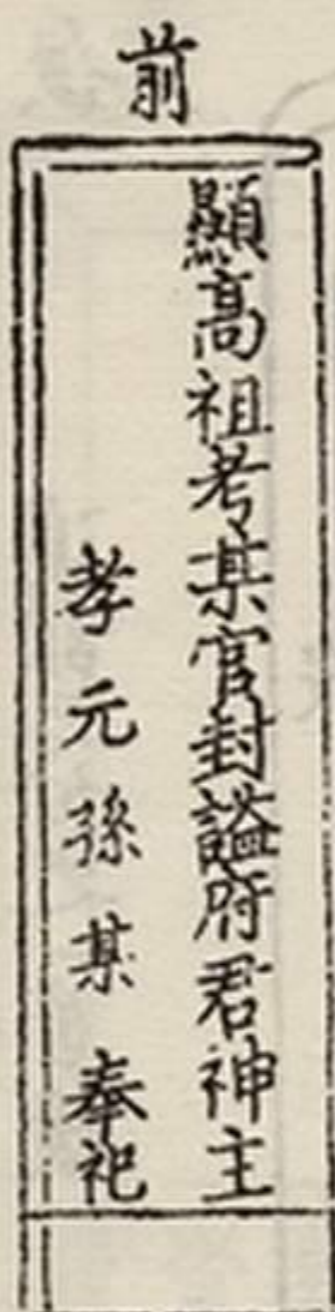 前
顯高祖考某官封諡府君神主
孝元孫某奉祀